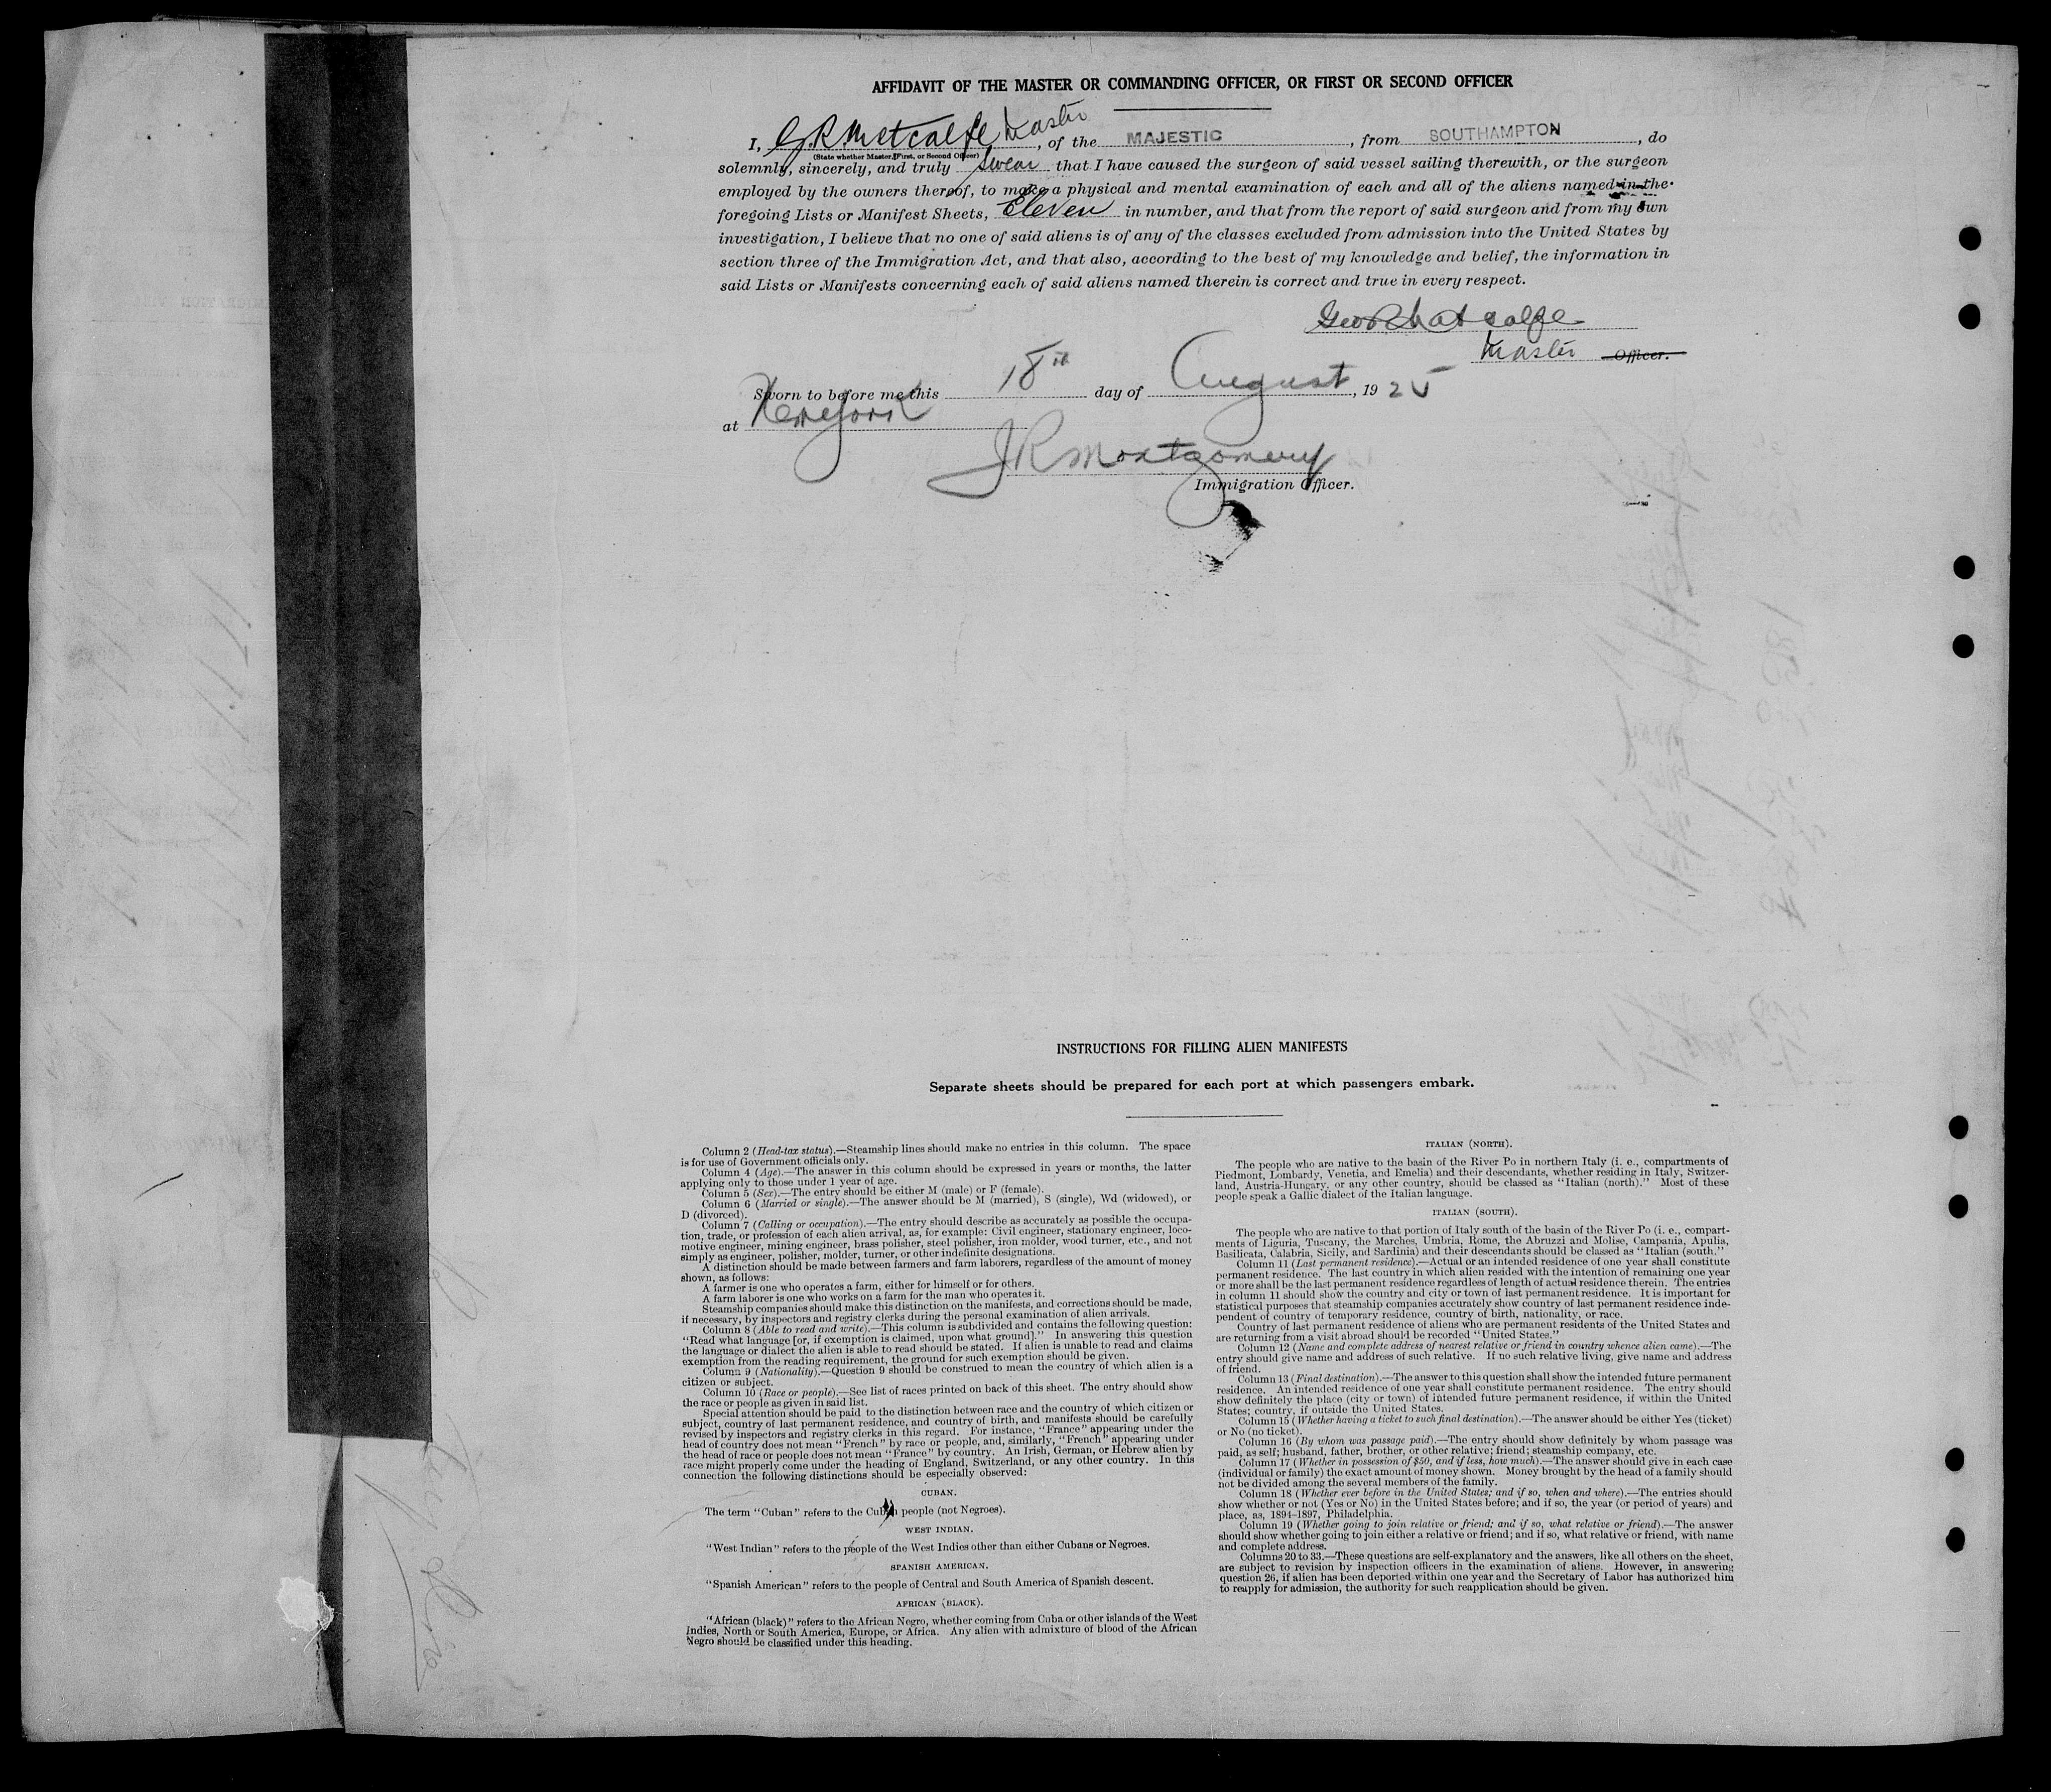 AFFIDAVIT OF THE MASTER OR COMMANDING OFFICER, OR FIRST OR SECOND OFFICER
I, G.R. Metcalfe Master, of the MAJESTIC, from SOUTHAMPTON, do
(State whether Master, First, or Second Officer)
solemnly, sincerely, and truly swear that I have caused the surgeon of said vessel sailing therewith, or the surgeon
employed by the owners thereof, to make a physical and mental examination of each and all of the aliens named in the
foregoing Lists or Manifest Sheets, Eleven in number, and that from the report of said surgeon and from my own
investigation, I believe that no one of said aliens is of any of the classes excluded from admission into the United States by
section three of the Immigration Act, and that also, according to the best of my knowledge and belief, the information in
said Lists or Manifests concerning each of said aliens named therein is correct and true in every respect.
Geo R Metcalfe
Master Officer.
Sworn to before me this 18th day of August, 1925
at New York
J R Montgomery
Immigration Officer.
INSTRUCTIONS FOR FILLING ALIEN MANIFESTS
Separate sheets should be prepared for each port at which passengers embark.
Column 2 (Head-tax status).—Steamship lines should make no entries in this column. The space
is for use of Government officials only.
Column 4 (Age).—The answer in this column should be expressed in years or months, the latter
applying only to those under 1 year of age.
Column 5 (Sex).—The entry should be either M (male) or F (female).
Column 6 (Married or single).—The answer should be M (married), S (single), Wd (widowed), or
D (divorced).
Column 7 (Calling or occupation).—The entry should describe as accurately as possible the occupa-
tion, trade, or profession of each alien arrival, as, for example: Civil engineer, stationary engineer, loco-
motive engineer, mining engineer, brass polisher, steel polisher, iron molder, wood turner, etc., and not
simply as engineer, polisher, molder, turner, or other indefinite designations.
A distinction should be made between farmers and farm laborers, regardless of the amount of money
shown, as follows:
A farmer is one who operates a farm, either for himself or for others.
A farm laborer is one who works on a farm for the man who operates it.
Steamship companies should make this distinction on the manifests, and corrections should be made,
if necessary, by inspectors and registry clerks during the personal examination of alien arrivals.
Column 8 (Able to read and write).—This column is subdivided and contains the following question:
"Read what language [or, if exemption is claimed, upon what ground]." In answering this question
the language or dialect the alien is able to read should be stated. If alien is unable to read and claims
exemption from the reading requirement, the ground for such exemption should be given.
Column 9 (Nationality).—Question 9 should be construed to mean the country of which alien is a
citizen or subject.
Column 10 (Race or people).—See list of races printed on back of this sheet. The entry should show
the race or people as given in said list.
Special attention should be paid to the distinction between race and the country of which citizen or
subject, country of last permanent residence, and country of birth, and manifests should be carefully
revised by inspectors and registry clerks in this regard. For instance, "France" appearing under the
head of country does not mean "French" by race or people, and, similarly, "French" appearing under
the head of race or people does not mean "France" by country. An Irish, German, or Hebrew alien by
race might properly come under the heading of England, Switzerland, or any other country. In this
connection the following distinctions should be especially observed:
CUBAN.
The term "Cuban" refers to the Cuban people (not Negroes).
WEST INDIAN.
"West Indian" refers to the people of the West Indies other than either Cubans or Negroes.
SPANISH AMERICAN.
"Spanish American" refers to the people of Central and South America of Spanish descent.
AFRICAN (BLACK).
"African (black)" refers to the African Negro, whether coming from Cuba or other islands of the West
Indies, North or South America, Europe, or Africa. Any alien with admixture of blood of the African
Negro should be classified under this heading.
ITALIAN (NORTH).
The people who are native to the basin of the River Po in northern Italy (i. e., compartments of
Piedmont, Lombardy, Venetia, and Emelia) and their descendants, whether residing in Italy, Switzer-
land, Austria-Hungary, or any other country, should be classed as "Italian (north)." Most of these
people speak a Gallic dialect of the Italian language.
ITALIAN (SOUTH).
The people who are native to that portion of Italy south of the basin of the River Po (i. e., compart-
ments of Liguria, Tuscany, the Marches, Umbria, Rome, the Abruzzi and Molise, Campania, Apulia,
Basilicata, Calabria, Sicily, and Sardinia) and their descendants should be classed as "Italian (south."
Column 11 (Last permanent residence).—Actual or an intended residence of one year shall constitute
permanent residence. The last country in which alien resided with the intention of remaining one year
or more shall be the last permanent residence regardless of length of actual residence therein. The entries
in column 11 should show the country and city or town of last permanent residence. It is important for
statistical purposes that steamship companies accurately show country of last permanent residence inde-
pendent of country of temporary residence, country of birth, nationality, or race.
Country of last permanent residence of aliens who are permanent residents of the United States and
are returning from a visit abroad should be recorded "United States."
Column 12 (Name and complete address of nearest relative or friend in country whence alien came).—The
entry should give name and address of such relative. If no such relative living, give name and address
of friend.
Column 13 (Final destination).—The answer to this question shall show the intended future permanent
residence. An intended residence of one year shall constitute permanent residence. The entry should
show definitely the place (city or town) of intended future permanent residence, if within the United
States; country, if outside the United States.
Column 15 (Whether having a ticket to such final destination).—The answer should be either Yes (ticket)
or No (no ticket).
Column 16 (By whom was passage paid).—The entry should show definitely by whom passage was
paid, as self; husband, father, brother, or other relative; friend; steamship company, etc.
Column 17 (Whether in possession of $50, and if less, how much).—The answer should give in each case
(individual or family) the exact amount of money shown. Money brought by the head of a family should
not be divided among the several members of the family.
Column 18 (Whether ever before in the United States; and if so, when and where).—The entries should
show whether or not (Yes or No) in the United States before; and if so, the year (or period of years) and
place, as, 1894–1897, Philadelphia.
Column 19 (Whether going to join relative or friend; and if so, what relative or friend).—The answer
should show whether going to join either a relative or friend; and if so, what relative or friend, with name
and complete address.
Columns 20 to 33.—These questions are self-explanatory and the answers, like all others on the sheet,
are subject to revision by inspection officers in the examination of aliens. However, in answering
question 26, if alien has been deported within one year and the Secretary of Labor has authorized him
to reapply for admission, the authority for such reapplication should be given.